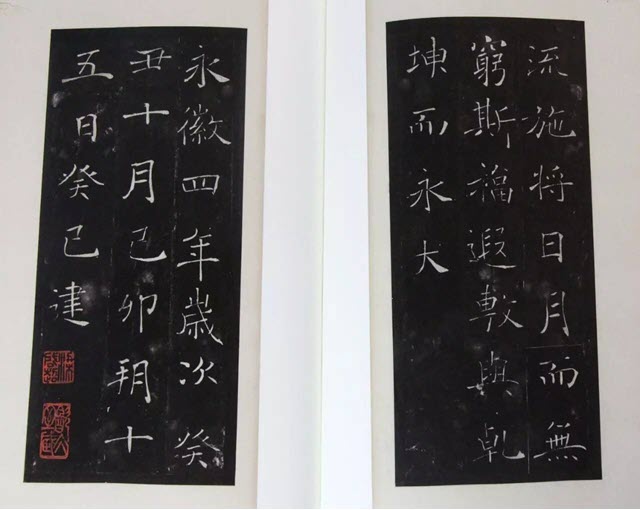 流施将日月而無
窮斯福遐敷與乹
坤而永大
永徽四年歲次癸
丑十月己卯朔十
五日癸巳建